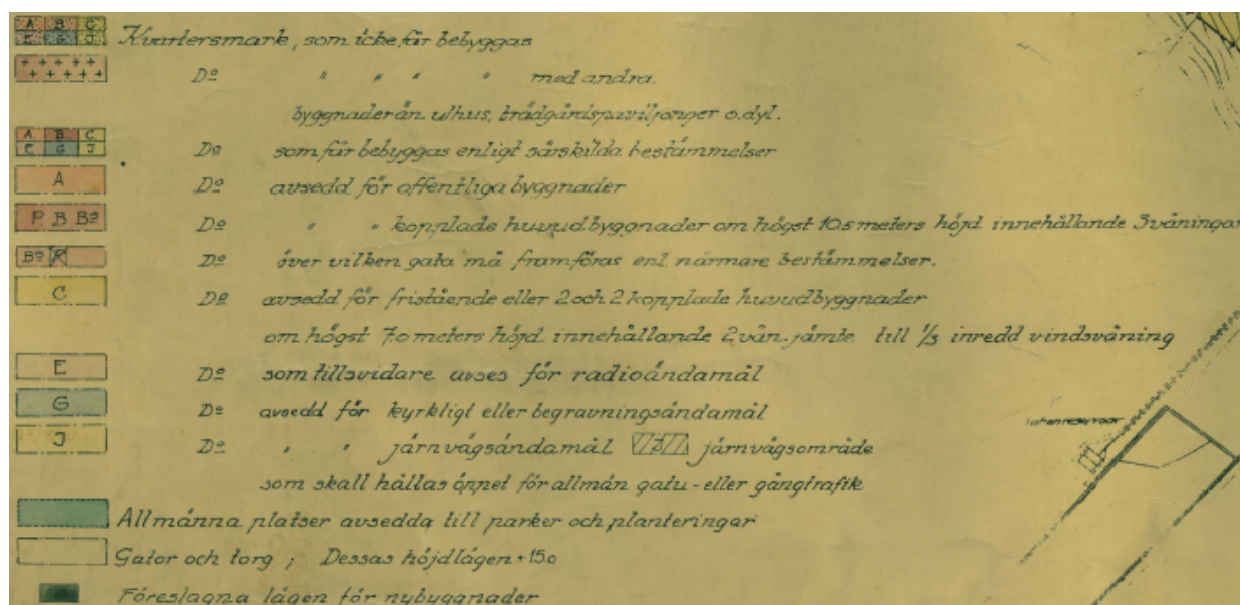 A B C
E G J Kvartersmark, som icke får bebyggas
Dº " " " " med andra
byggnader än uthus, trädgårdspaviljonger o.dyl.
A B C
E G J Dº som får bebyggas enligt särskilda bestämmelser
A Dº avsedd för offentliga byggnader
B Bº Dº " " kopplade huvudbyggnader om högst 10.5 meters höjd innehållande 3 våningar
Bº Dº över vilken gata må framföras enl. närmare bestämmelser.
C Dº avsedd för fristående eller 2 och 2 kopplade huvudbyggnader
om högst 7.0 meters höjd innehållande 2 vån. jämte till 1/3 inredd vindsvåning
E Dº som tillsvidare avses för radioändamål
G Dº avsedd för kyrkligt eller begravningsändamål
J Dº " " järnvägsändamål J järnvägsområde
som skall hållas öppet för allmän gatu- eller gångtrafik
Allmänna platser avsedda till parker och planteringar
Gator och torg ; Dessas höjdlägen +15.0
Föreslagna lägen för nybyggnader